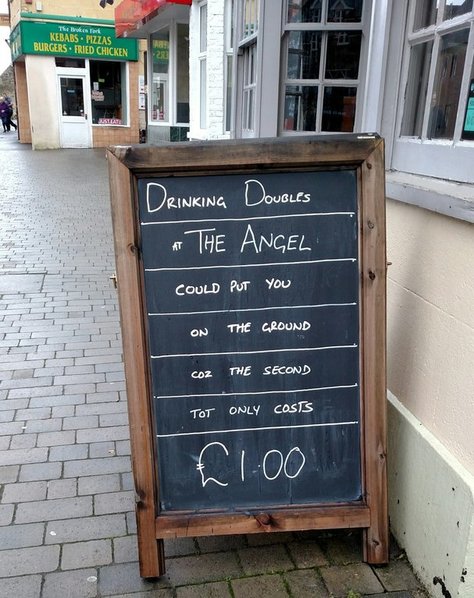 The Broken Fork
KEBABS • PIZZAS
BURGERS • FRIED CHICKEN
JUST EAT
DRINKING DOUBLES
AT THE ANGEL
COULD PUT YOU
ON THE GROUND
COZ THE SECOND
TOT ONLY COSTS
£1.00